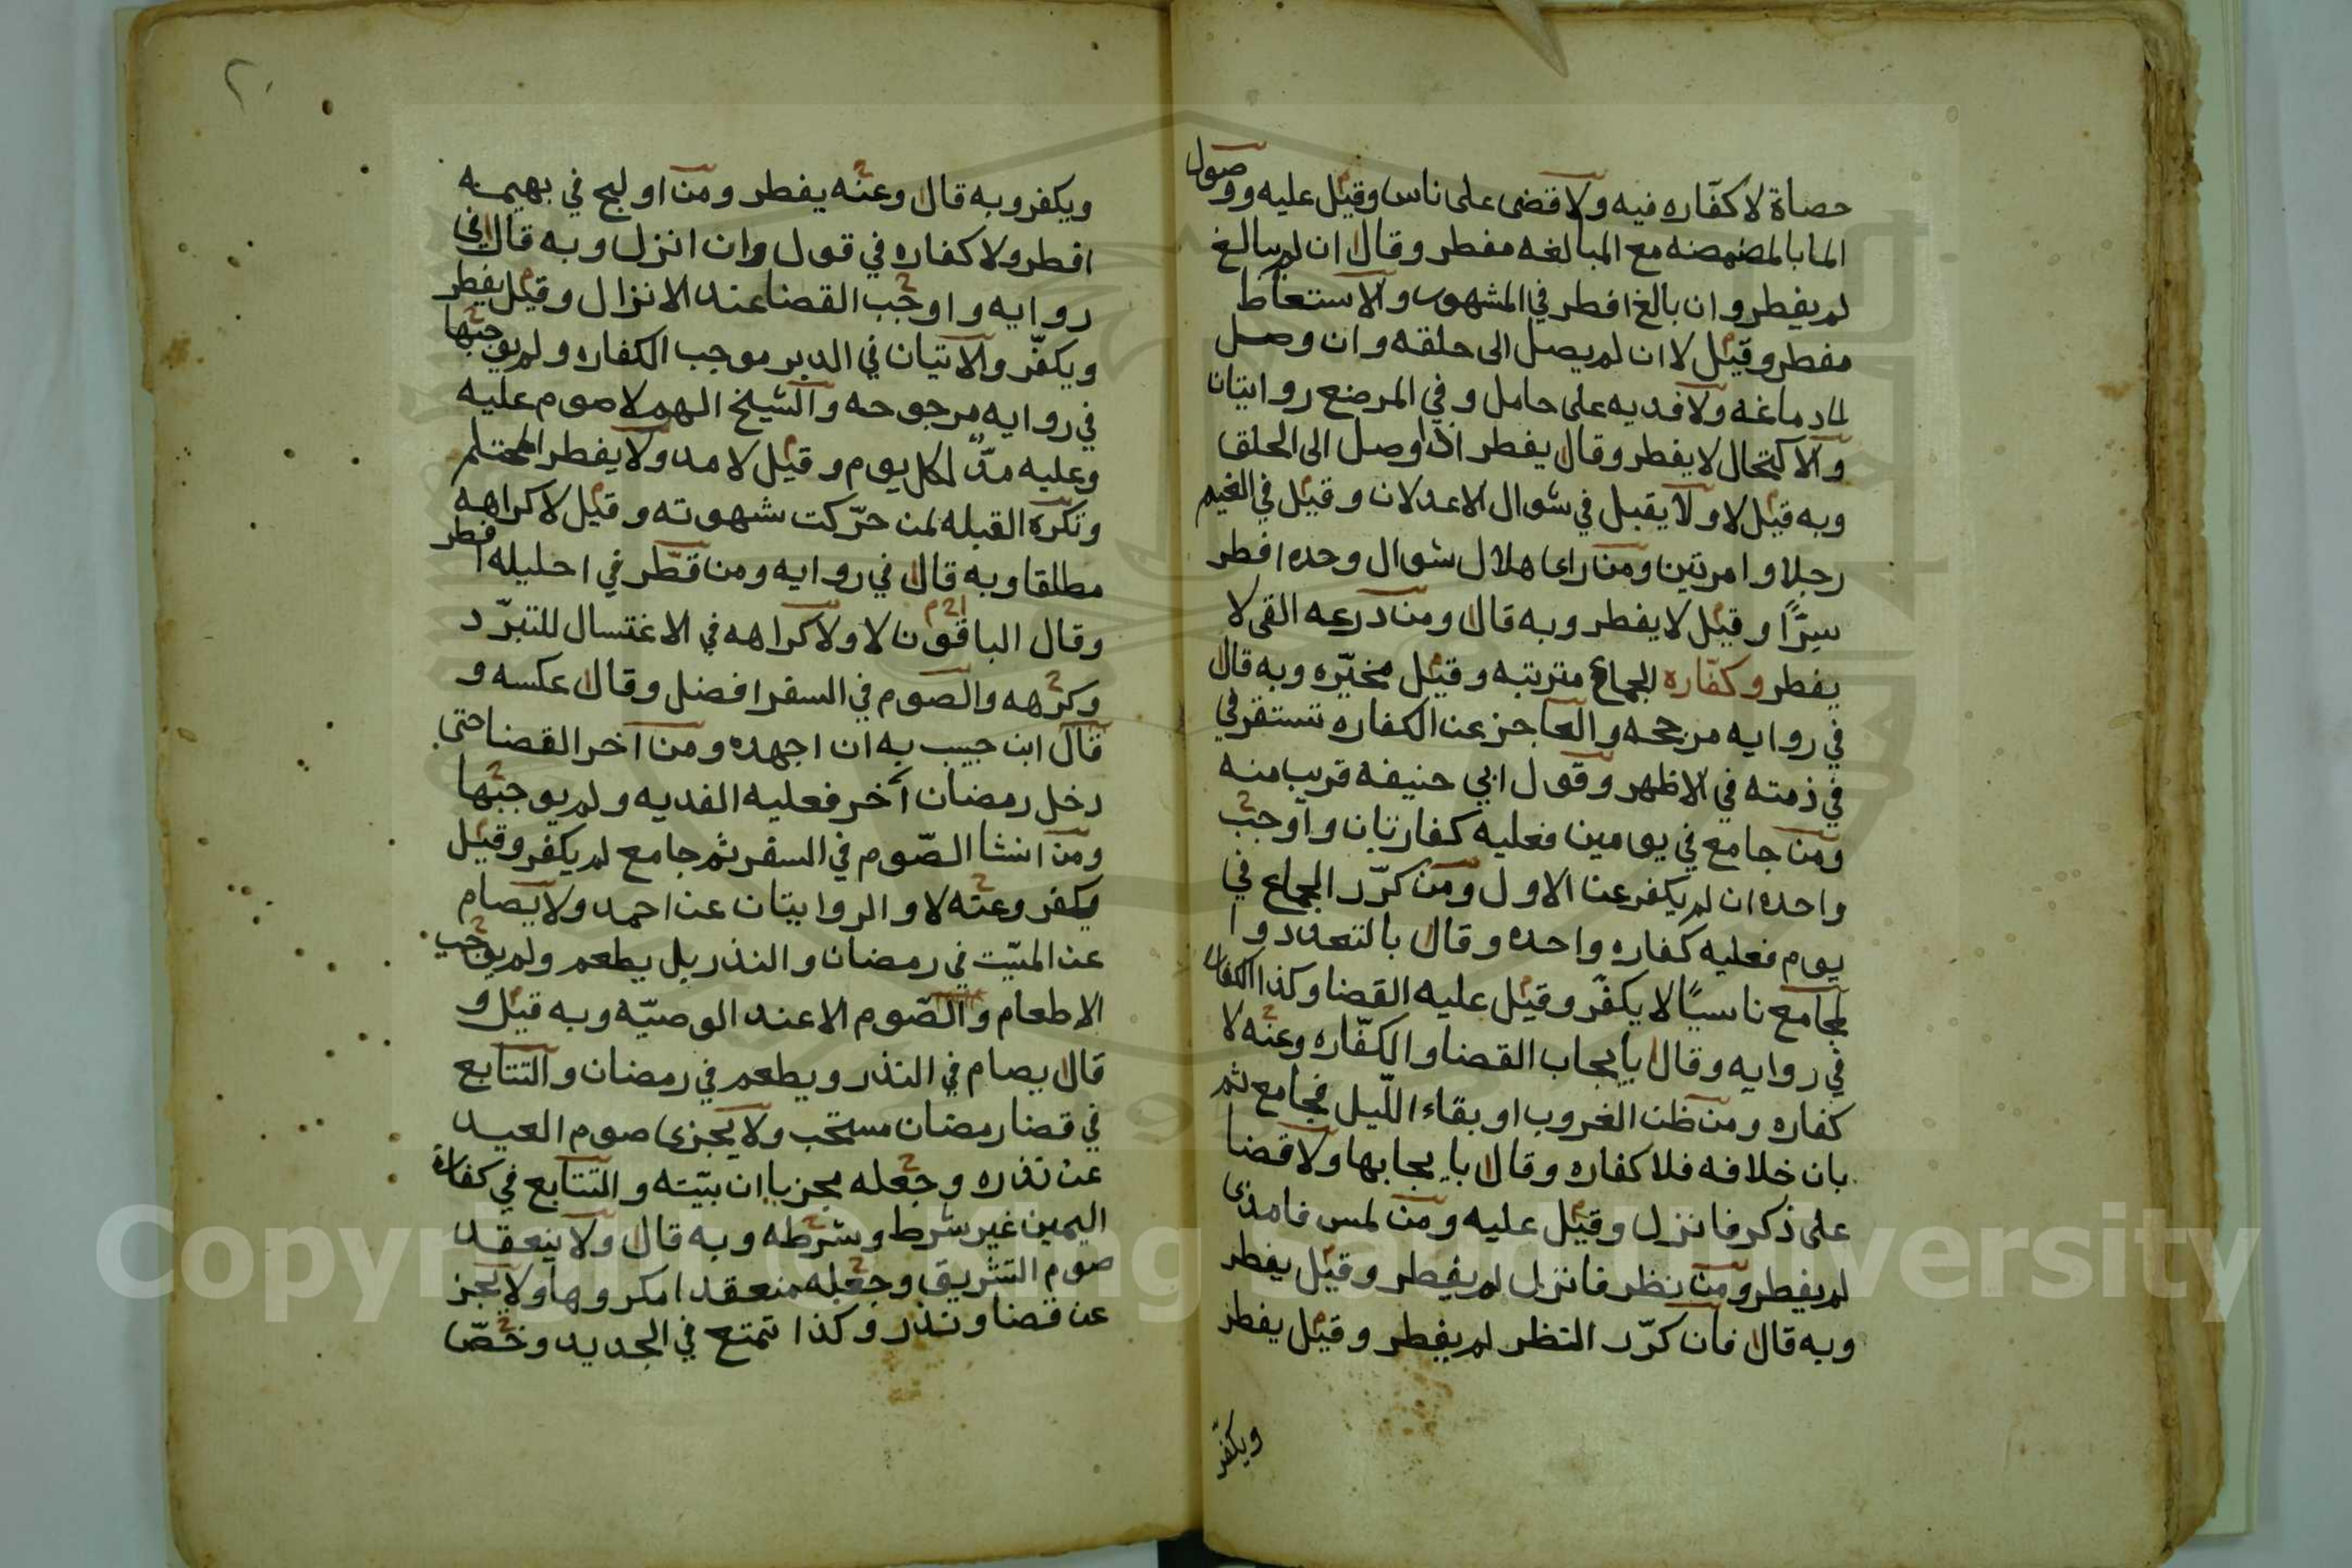 حصاة لا كفّاره فيه ولا قضى على ناس وقيل عليه ووصول
الما بالمضمضه مع المبالغه مفطر وقال ان لم يبالغ
لم يفطر وان بالغ افطر في المشهور والاستعاط
مفطر وقيل لا ان لم يصل الى حلقه وان وصل
لدماغه ولا فديه على حامل وفي المرضع روايتان
والاكتحال لا يفطر وقال يفطر اذا وصل الى الحلق
وبه قيل لا ولا يقبل في شوال الا عدلان وقيل في الغيم
رجلا وامرتين ومن راى هلال شوال وحده افطر
سِرًّا وقيل لا يفطر وبه قال ومن ذرعه القى لا
يفطر وكفّاره الجماع مترتبه وقيل مخيّره وبه قال
في روايه مرجحه والعاجز عن الكفاره تستقر في
في ذمته في الاظهر وقول ابي حنيفه قريب منه
ومن جامع في يومين فعليه كفارتان واوجب
واحده ان لم يكفر عن الاول ومن كرّر الجماع في
يوم فعليه كفاره واحده وقال بالتعدد وا
لمجامع ناسيًا لا يكفّر وقيل عليه القضا وكذا الكفاره
في روايه وقال بايجاب القضا والكفّاره وعنه لا
كفاره ومن ظن الغروب او بقاء اللّيل فجامع ثم
بان خلافه فلا كفاره وقال بايجابها ولا قضا
على ذكر فانزل وقيل عليه ومن لمس فامذى
لم يفطر ومن نظر فانزل لم يفطر وقيل يفطر
وبه قال فان كرّر النظر لم يفطر وقيل يفطر
ويكفّر
٢٠
ويكفر وبه قال وعنه يفطر ومن اولج في بهيمه
افطر ولا كفاره في قول وان انزل وبه قال في
روايه واوجب القضا عند الانزال وقيل يفطر
ويكفّر والاتيان في الدبر موجب الكفاره ولم يوجبها
في روايه مرجوحه والشيخ الهم لا صوم عليه
وعليه مدّ لكل يوم وقيل لا مد ولا يفطر المحتلم
وتكره القبله لمن حرّكت شهوته وقيل لا كراهه
مطلقا وبه قال في روايه ومن قطّر في احليله افطر
وقال الباقون لا ولا كراهه في الاغتسال للتبرّد
وكرهه والصوم في السفر افضل وقال عكسه و
قال ابن حبيب به ان اجهده ومن اخر القضا حتى
دخل رمضان آخر فعليه الفديه ولم يوجبها
ومن انشا الصّوم في السفر ثم جامع لم يكفر وقيل
يكفر وعنه لا والروايتان عن احمد ولا يصام
عن الميّت في رمضان والنذر بل يطعم ولم يوجب
الاطعام والصّوم الا عند الوصيّه وبه قيل و
قال يصام في النذر ويطعم في رمضان والتتابع
في قضا رمضان مستحب ولا يجزى صوم العيد
عن نذره وجعله مجزيا ان بيّته والتتابع في كفارة
اليمين غير شرط وشرطه وبه قال ولا ينعقد
صوم التشريق وجعله منعقدا مكروها ولا يجز
عن قضا ونذر وكذا تمتع في الجديد وخصّا
Copyright © King Saud University